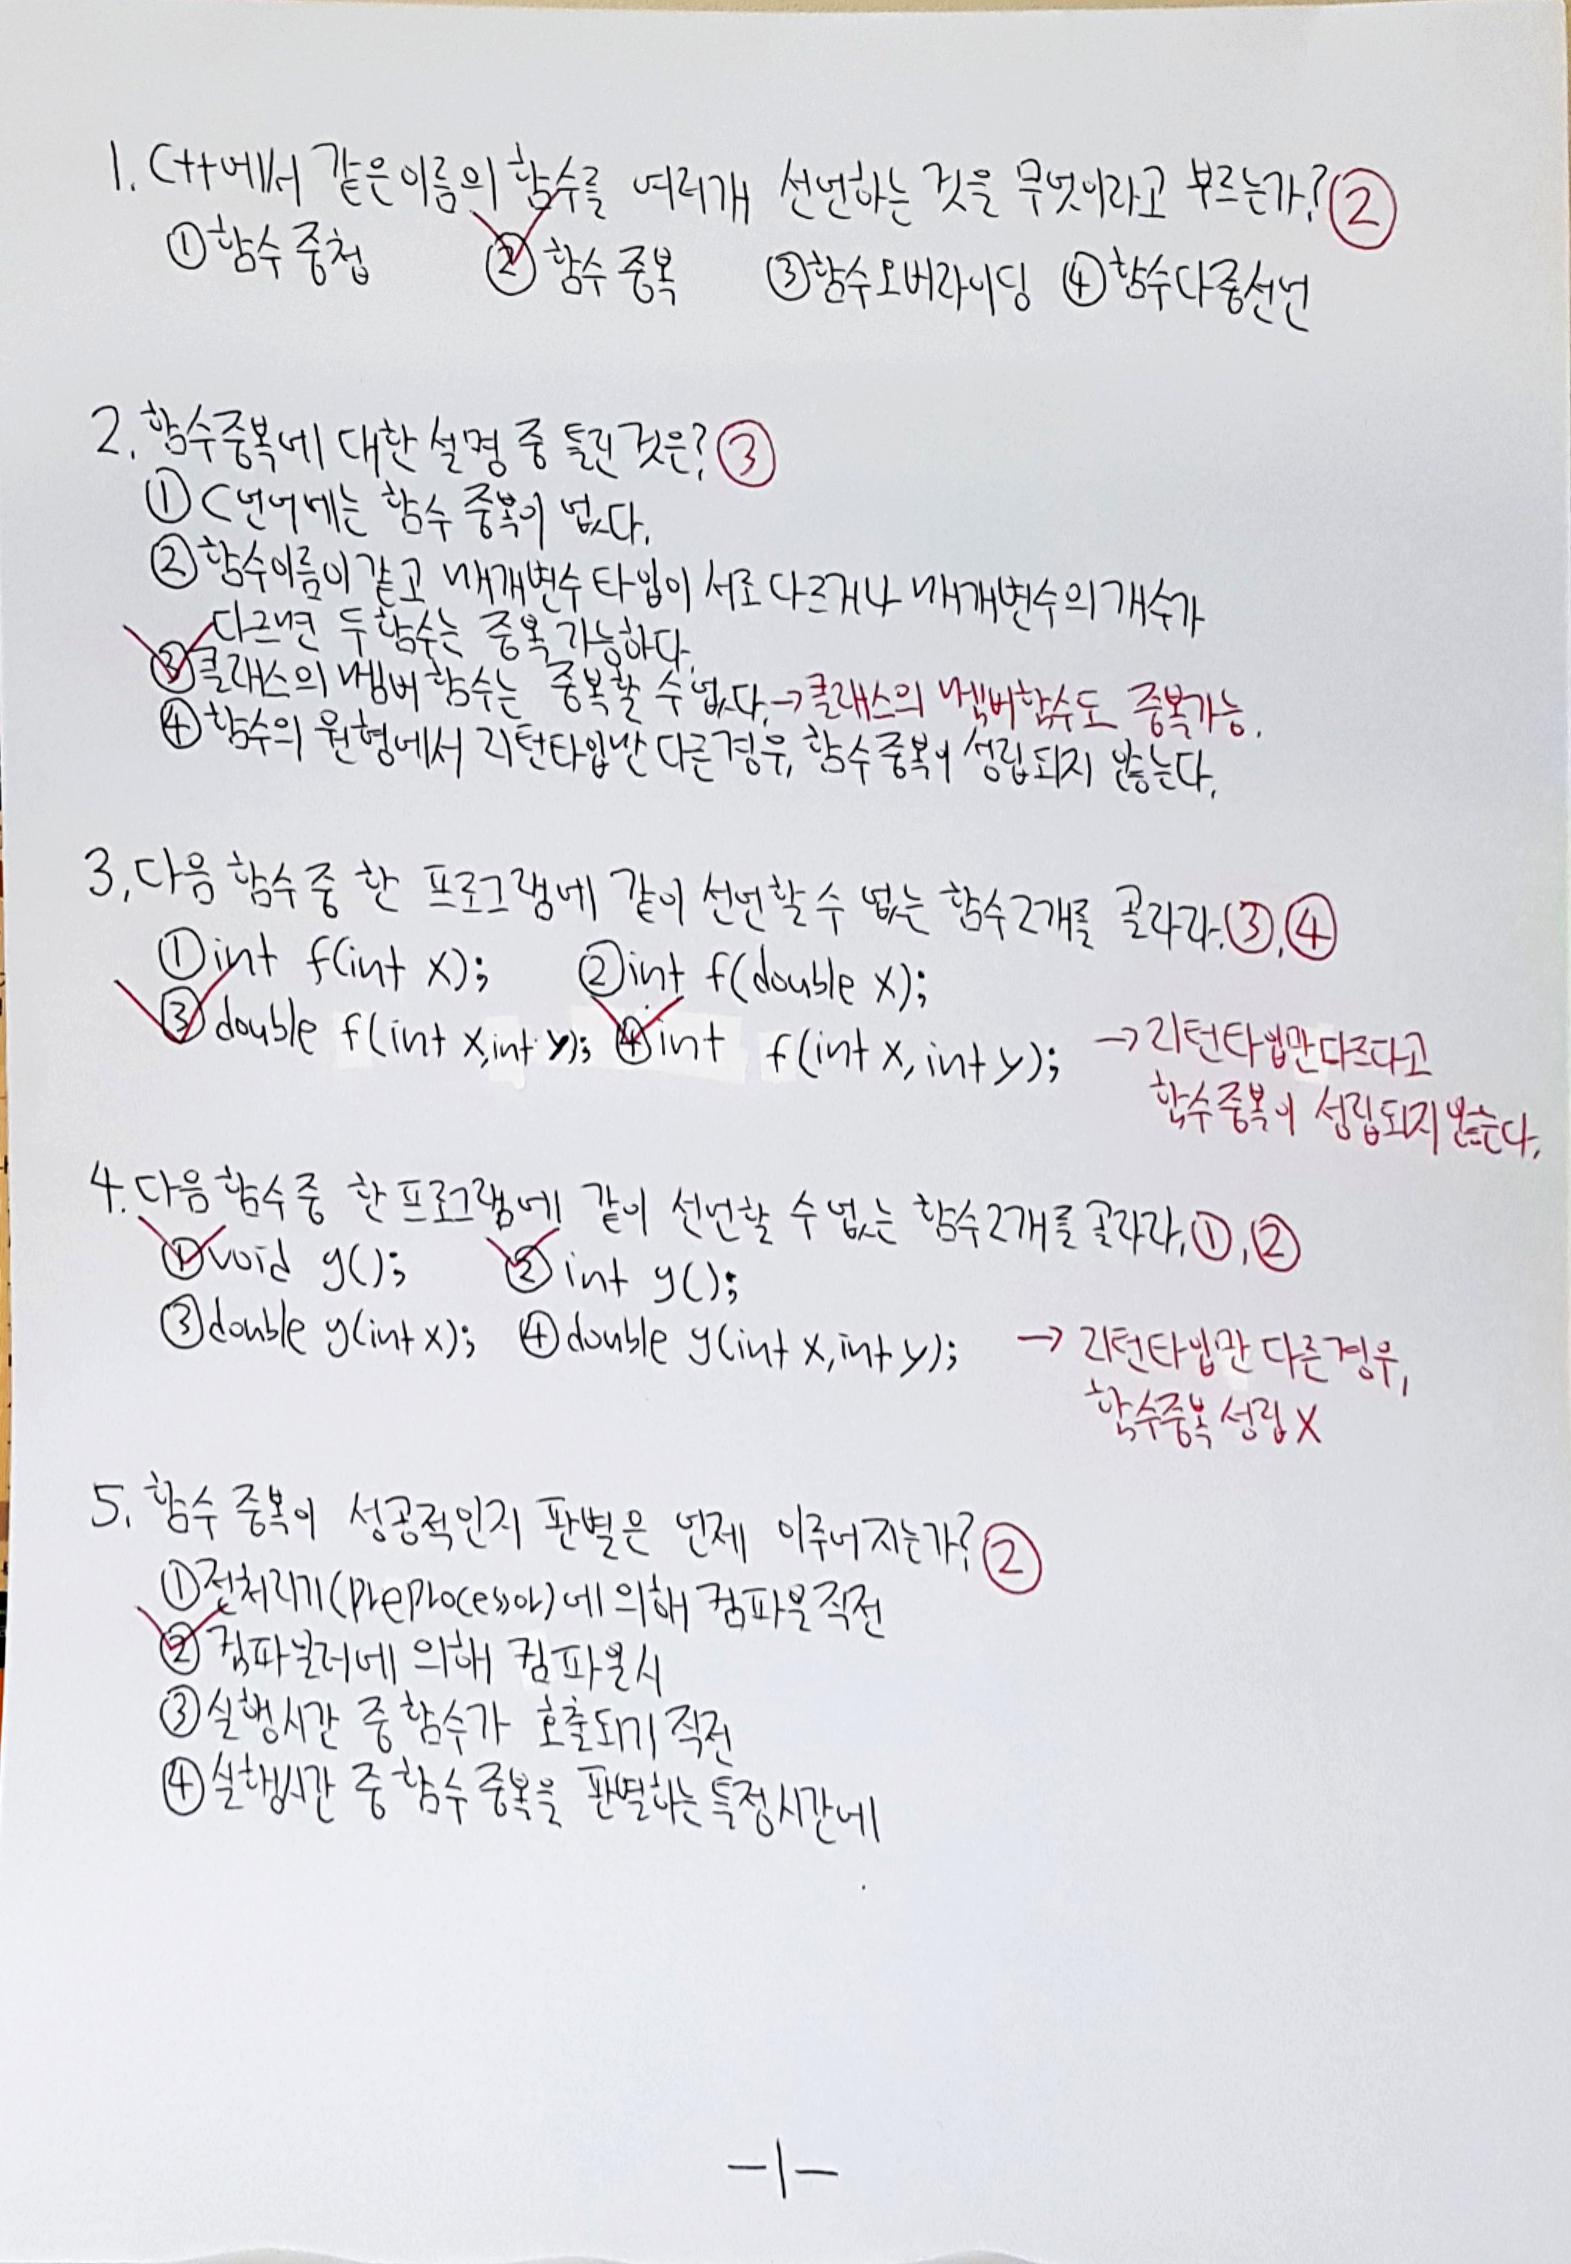 1. C++에서 같은이름의 함수를 여러개 선언하는 것을 무엇이라고 부르는가? ②
① 함수 중첩 ② 함수 중복 ③ 함수오버라이딩 ④ 함수다중선언
2. 함수중복에 대한 설명 중 틀린 것은? ③
① C언어에는 함수 중복이 없다.
② 함수이름이 같고 매개변수 타입이 서로 다르거나 매개변수의 개수가
다르면 두 함수는 중복 가능하다.
③ 클래스의 멤버 함수는 중복할 수 없다. → 클래스의 멤버함수도 중복가능.
④ 함수의 원형에서 리턴타입만 다른경우, 함수중복이 성립되지 않는다.
3. 다음 함수 중 한 프로그램에 같이 선언할 수 없는 함수 2개를 골라라. ③, ④
① int f(int x); ② int f(double x);
③ double f(int x, int y); ④ int f(int x, int y); → 리턴타입만다르다고
함수중복이 성립되지않는다.
4. 다음함수 중 한 프로그램에 같이 선언할 수 없는 함수2개를 골라라. ①, ②
① void y(); ② int y();
③ double y(int x); ④ double y(int x, int y); → 리턴타입만 다른경우,
함수중복 성립 X
5. 함수 중복이 성공적인지 판별은 언제 이루어지는가? ②
① 전처리기(preprocessor)에 의해 컴파일 직전
② 컴파일러에 의해 컴파일시
③ 실행시간 중 함수가 호출되기 직전
④ 실행시간 중 함수 중복을 판별하는 특정시간에
-1-